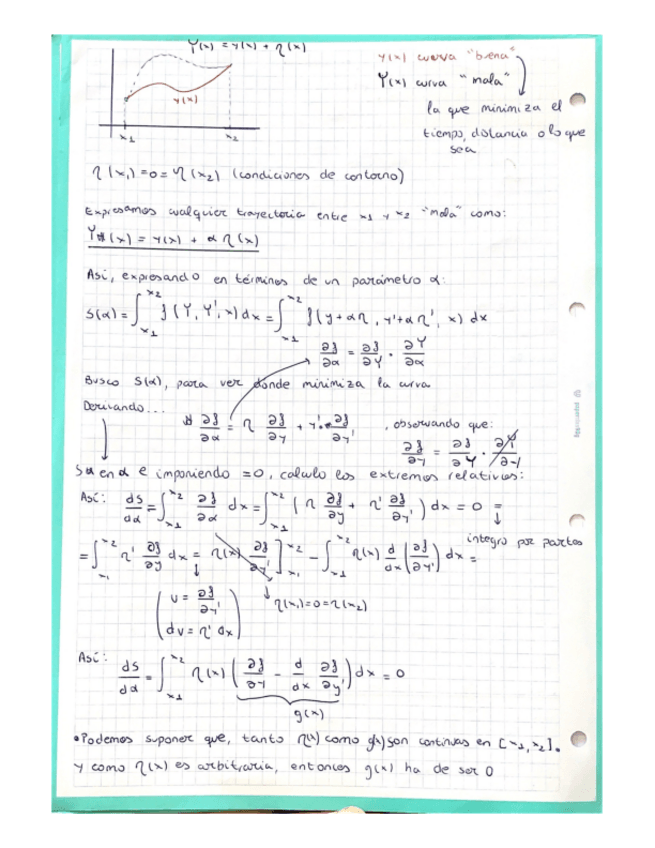 Y(x) = y(x) + η(x)
y(x)
x1
x2
y(x) curva "buena"
Y(x) curva "mala"
la que minimiza el
tiempo, distancia o lo que
sea
η(x1)=0=η(x2) (condiciones de contorno)
Expresamos cualquier trayectoria entre x1 y x2 "mala" como:
Y(x) = y(x) + α η(x)
Así, expresando en términos de un parámetro α:
S(α) = ∫_{x1}^{x2} f(Y, Y', x) dx = ∫_{x1}^{x2} f(y+αη, y'+αη', x) dx
∂f/∂α = ∂f/∂Y · ∂Y/∂α
Busco S(α), para ver donde minimiza la curva
Derivando...
∂f/∂α = η ∂f/∂y + η' ∂f/∂y' , observando que:
∂f/∂y = ∂f/∂Y · ∂Y/∂y
S en α e imponiendo =0, calculo los extremos relativos:
Así: dS/dα = ∫_{x1}^{x2} ∂f/∂α dx = ∫_{x1}^{x2} (η ∂f/∂y + η' ∂f/∂y') dx = 0 =
integro por partes
= ∫_{x1}^{x2} η' ∂f/∂y dx = η(x) ∂f/∂y' ]_{x1}^{x2} - ∫_{x1}^{x2} η(x) d/dx (∂f/∂y') dx =
u = ∂f/∂y'
dv = η' dx
η(x1)=0=η(x2)
Así: dS/dα = ∫_{x1}^{x2} η(x) (∂f/∂y - d/dx ∂f/∂y') dx = 0
g(x)
•Podemos suponer que, tanto η(x) como g(x) son continuas en [x1, x2].
y como η(x) es arbitraria, entonces g(x) ha de ser 0